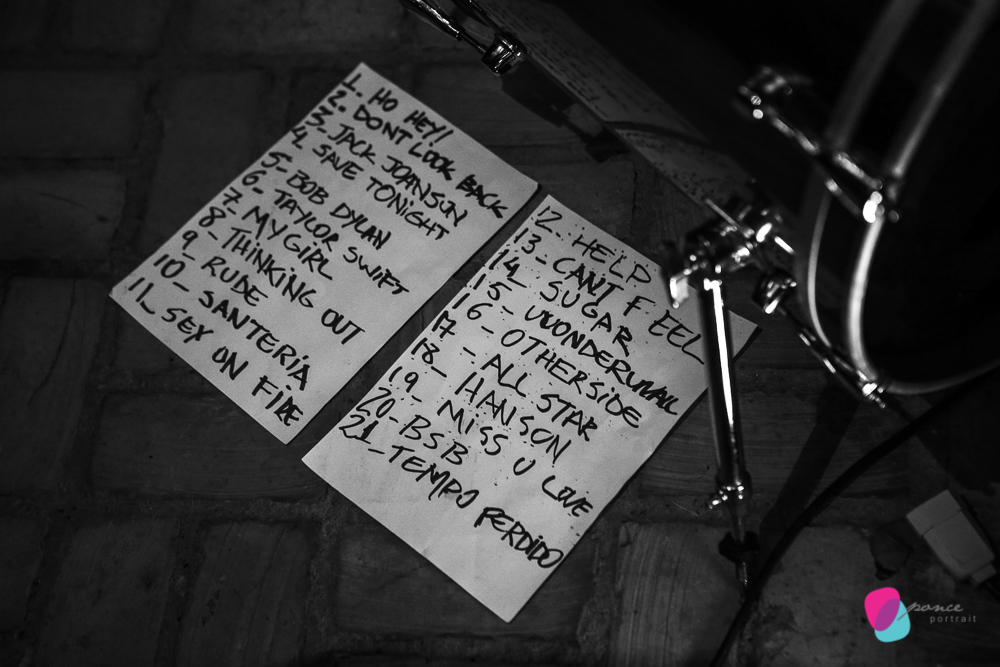 1. HO HEY!
2. DONT LOOK BACK
3- JACK JOHNSON
4. SAVE TONIGHT
5- BOB DYLAN
6- TAYLOR SWIFT
7- MY GIRL
8- THINKING OUT
9- RUDE
10- SANTERIA
11- SEX ON FIRE
12. HELP
13- CANT FEEL
14- SUGAR
15- WONDERWALL
16- OTHERSIDE
17- ALL STAR
18- HANSON
19- MISS U LOVE
20- BSB
21- TEMPO PERDIDO
ponce
portrait